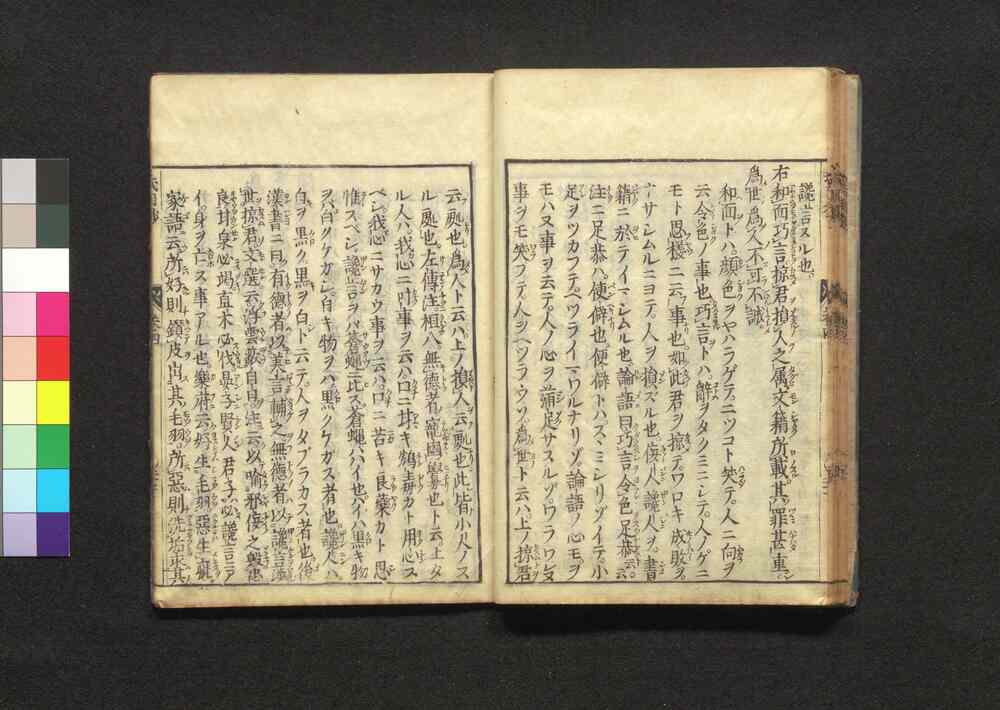 讒言スル也
右和而巧言掠君損人之属文籍所載其罪甚重
為世為人不可不誡
和面トハ顔色ヲヤハラゲテニツコト笑テ人ニ向ヲ
云令色ノ事也巧言トハ辞ヲタクミニシテ人ノゲニ
モト思様ニ云フ事也如此君ヲ掠テワロキ成敗ヲ
ナサシムルニヨテ人ヲ損ズル也侫人讒人ヲ書
籍ニ於テイマシムル也論語曰巧言令色足恭云
注ニ足恭ハ便僻也便僻トハスミシリゾイテ小
足ヲツカフテヘツライマワルナリゾ論語ノ心モヲ
モハヌ事ヲ云テ人ノ心ヲ満足サスルゾワラワヌ
事ヲモ笑フテ人ヲヘツラウゾ為世ト云ハ上ノ掠君
云処也為人ト云ハ上ノ損人云処也此皆小人ノス
ル処也左傳注桓八無德者寵國釁也ト云上タ
ル人ハ我心ニ叶事ヲ云ハロニ甘キ鴆毒カト用心ス
ベシ我心ニサカウ事ヲ云ハロニ苦キ良藥カト思
惟スベシ讒言ヲバ蒼蠅ニ比ス蒼蠅ハハイ也ハイハ黒キ物
ヲ白クケガシ白キ物ヲハ黒クケガス者也讒人ハ
白ヲ黒ク黒ヲ白ト云テ人ヲタブラカス者也後
漢書ニ曰有德者以美言輔之無德者以讒言
世掠君文選云浮雲蔽白日注云以喩邪侫之
良甘泉必竭直木必伐是乎賢人君子必讒言ニア
イ身ヲ亡ス事アル也樂府云好生毛羽惡生瘡
家語云所好則鑚皮出其毛羽所惡則洗垢求其